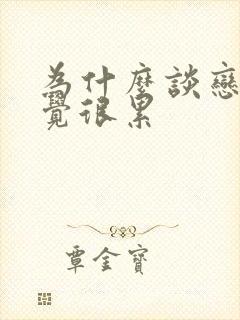 為什麼談戀
覺很累
覃金寶